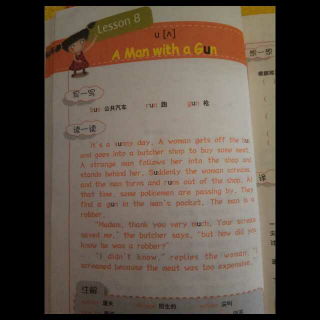 Lesson 8
u [ʌ]
A Man with a Gun
bus 公共汽车 run 跑 gun 枪
读一读
It's a sunny day. A woman gets off the bu
and goes into a butcher shop to buy some meat.
A strange man follows her into the shop and
stands behind her. Suddenly the woman screams
and the man turns and runs out of the shop. At
that time, some policemen are passing by. They
find a gun in the man's pocket. The man is a
robber.
"Madam, thank you very much. Your scream
saved me," the butcher says, "but how did you
know he was a robber?"
"I didn't know," replies the woman, "I
screamed because the meat was too expensive."
注解